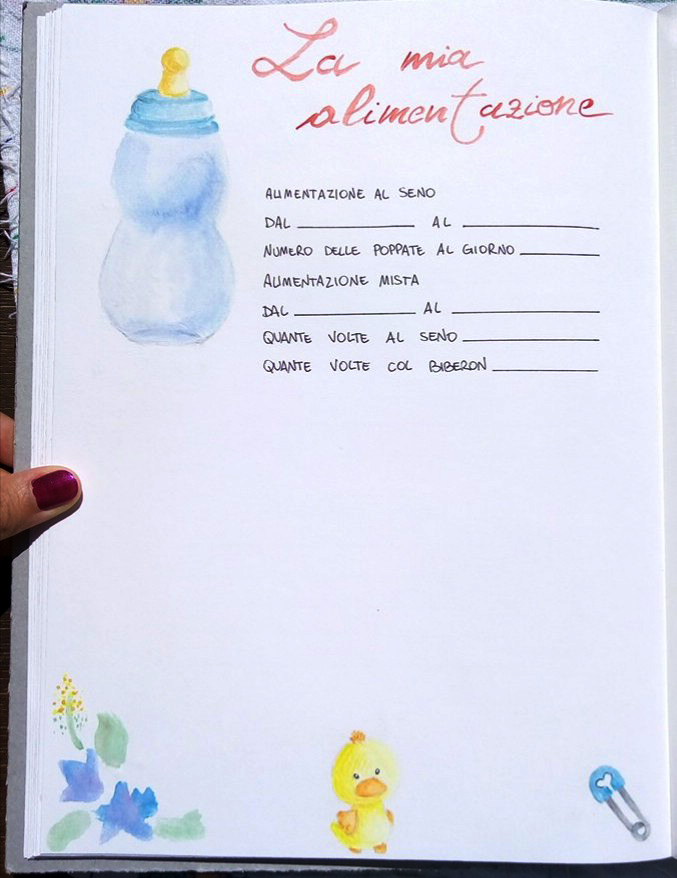 La mia
alimentazione
ALIMENTAZIONE AL SENO
DAL ____________ AL ____________
NUMERO DELLE POPPATE AL GIORNO ________
ALIMENTAZIONE MISTA
DAL ____________ AL ____________
QUANTE VOLTE AL SENO ____________
QUANTE VOLTE COL BIBERON ____________